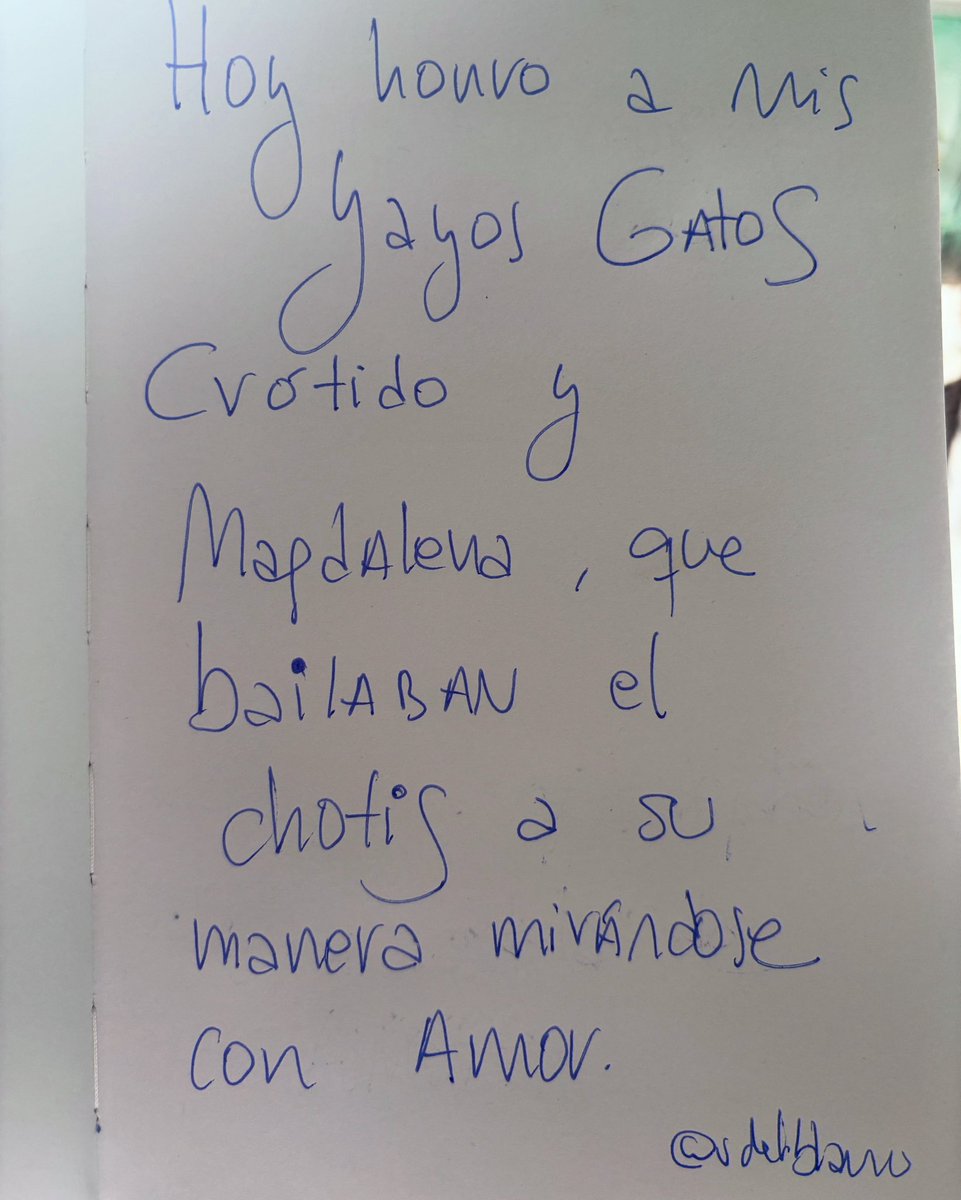 Hoy honro a mis
yayos GAtos
Crótido y
MagdAlena, que
bailABAN el
chotis a su
manera mirándose
con Amor.